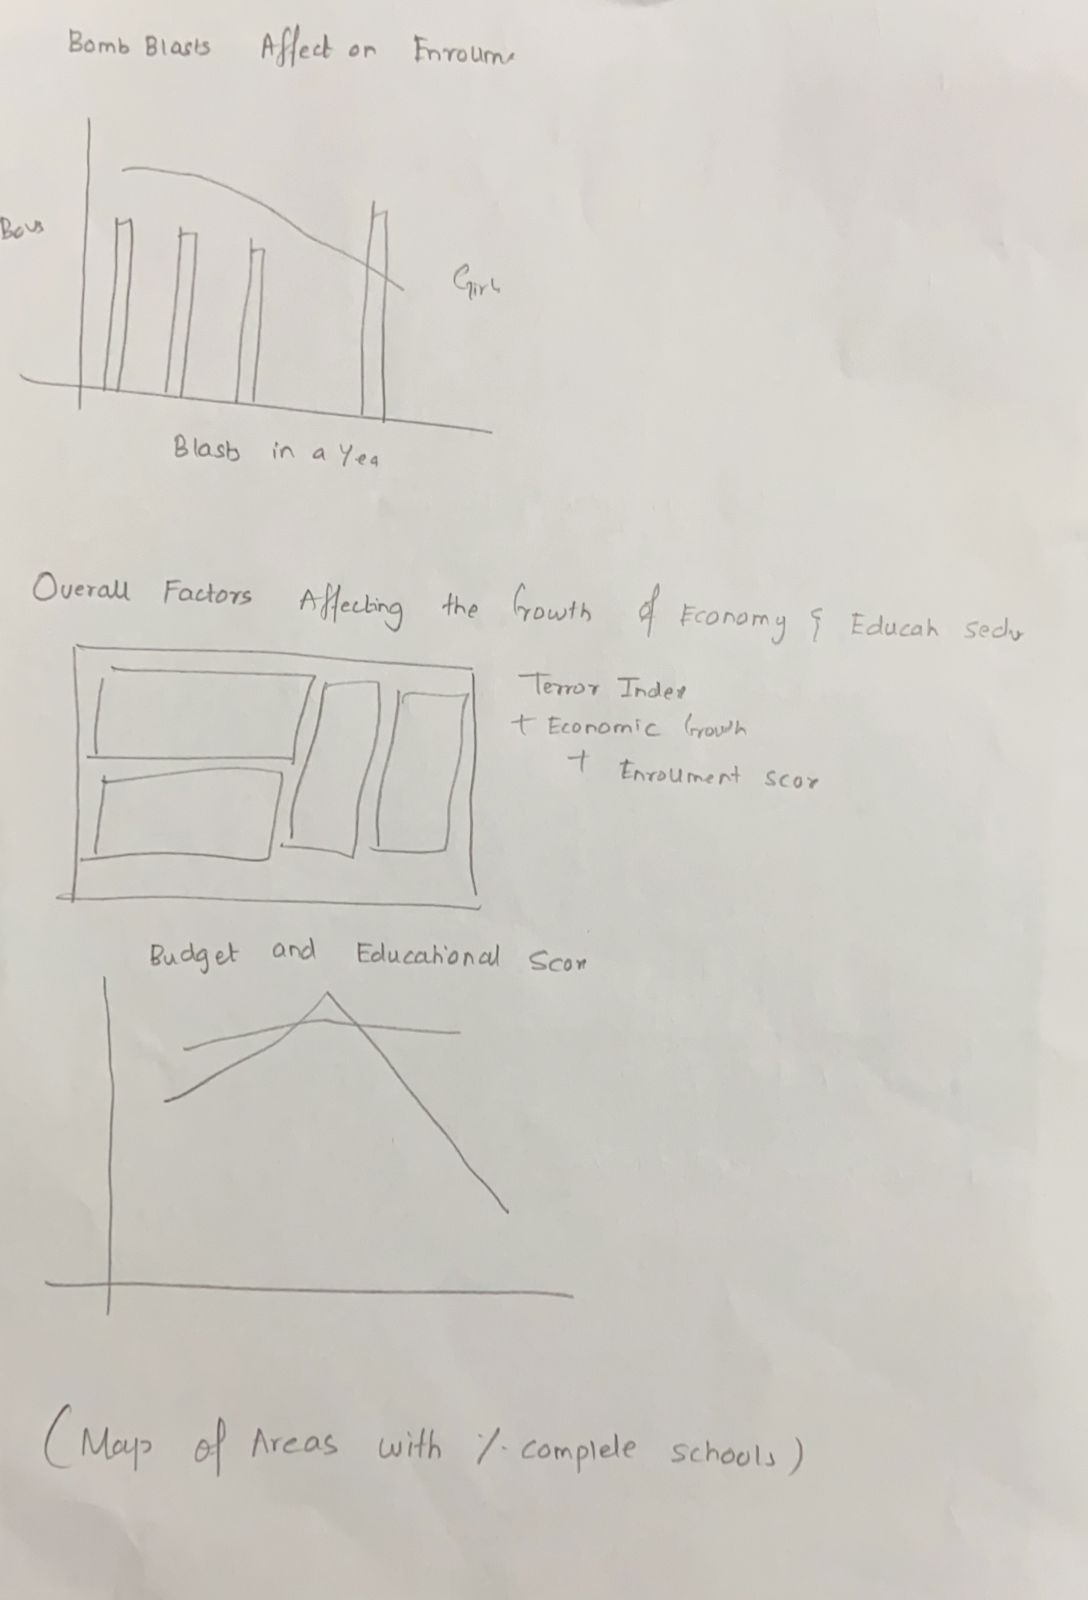 Bomb Blasts Affect on Enrollm
Boys
Girls
Blasts in a Yea
Overall Factors Affecting the Growth of Economy & Educah secto
Terror Index
+ Economic Growth
+ Enrollment Scor
Budget and Educational Scor
(Map of Areas with % complete schools)